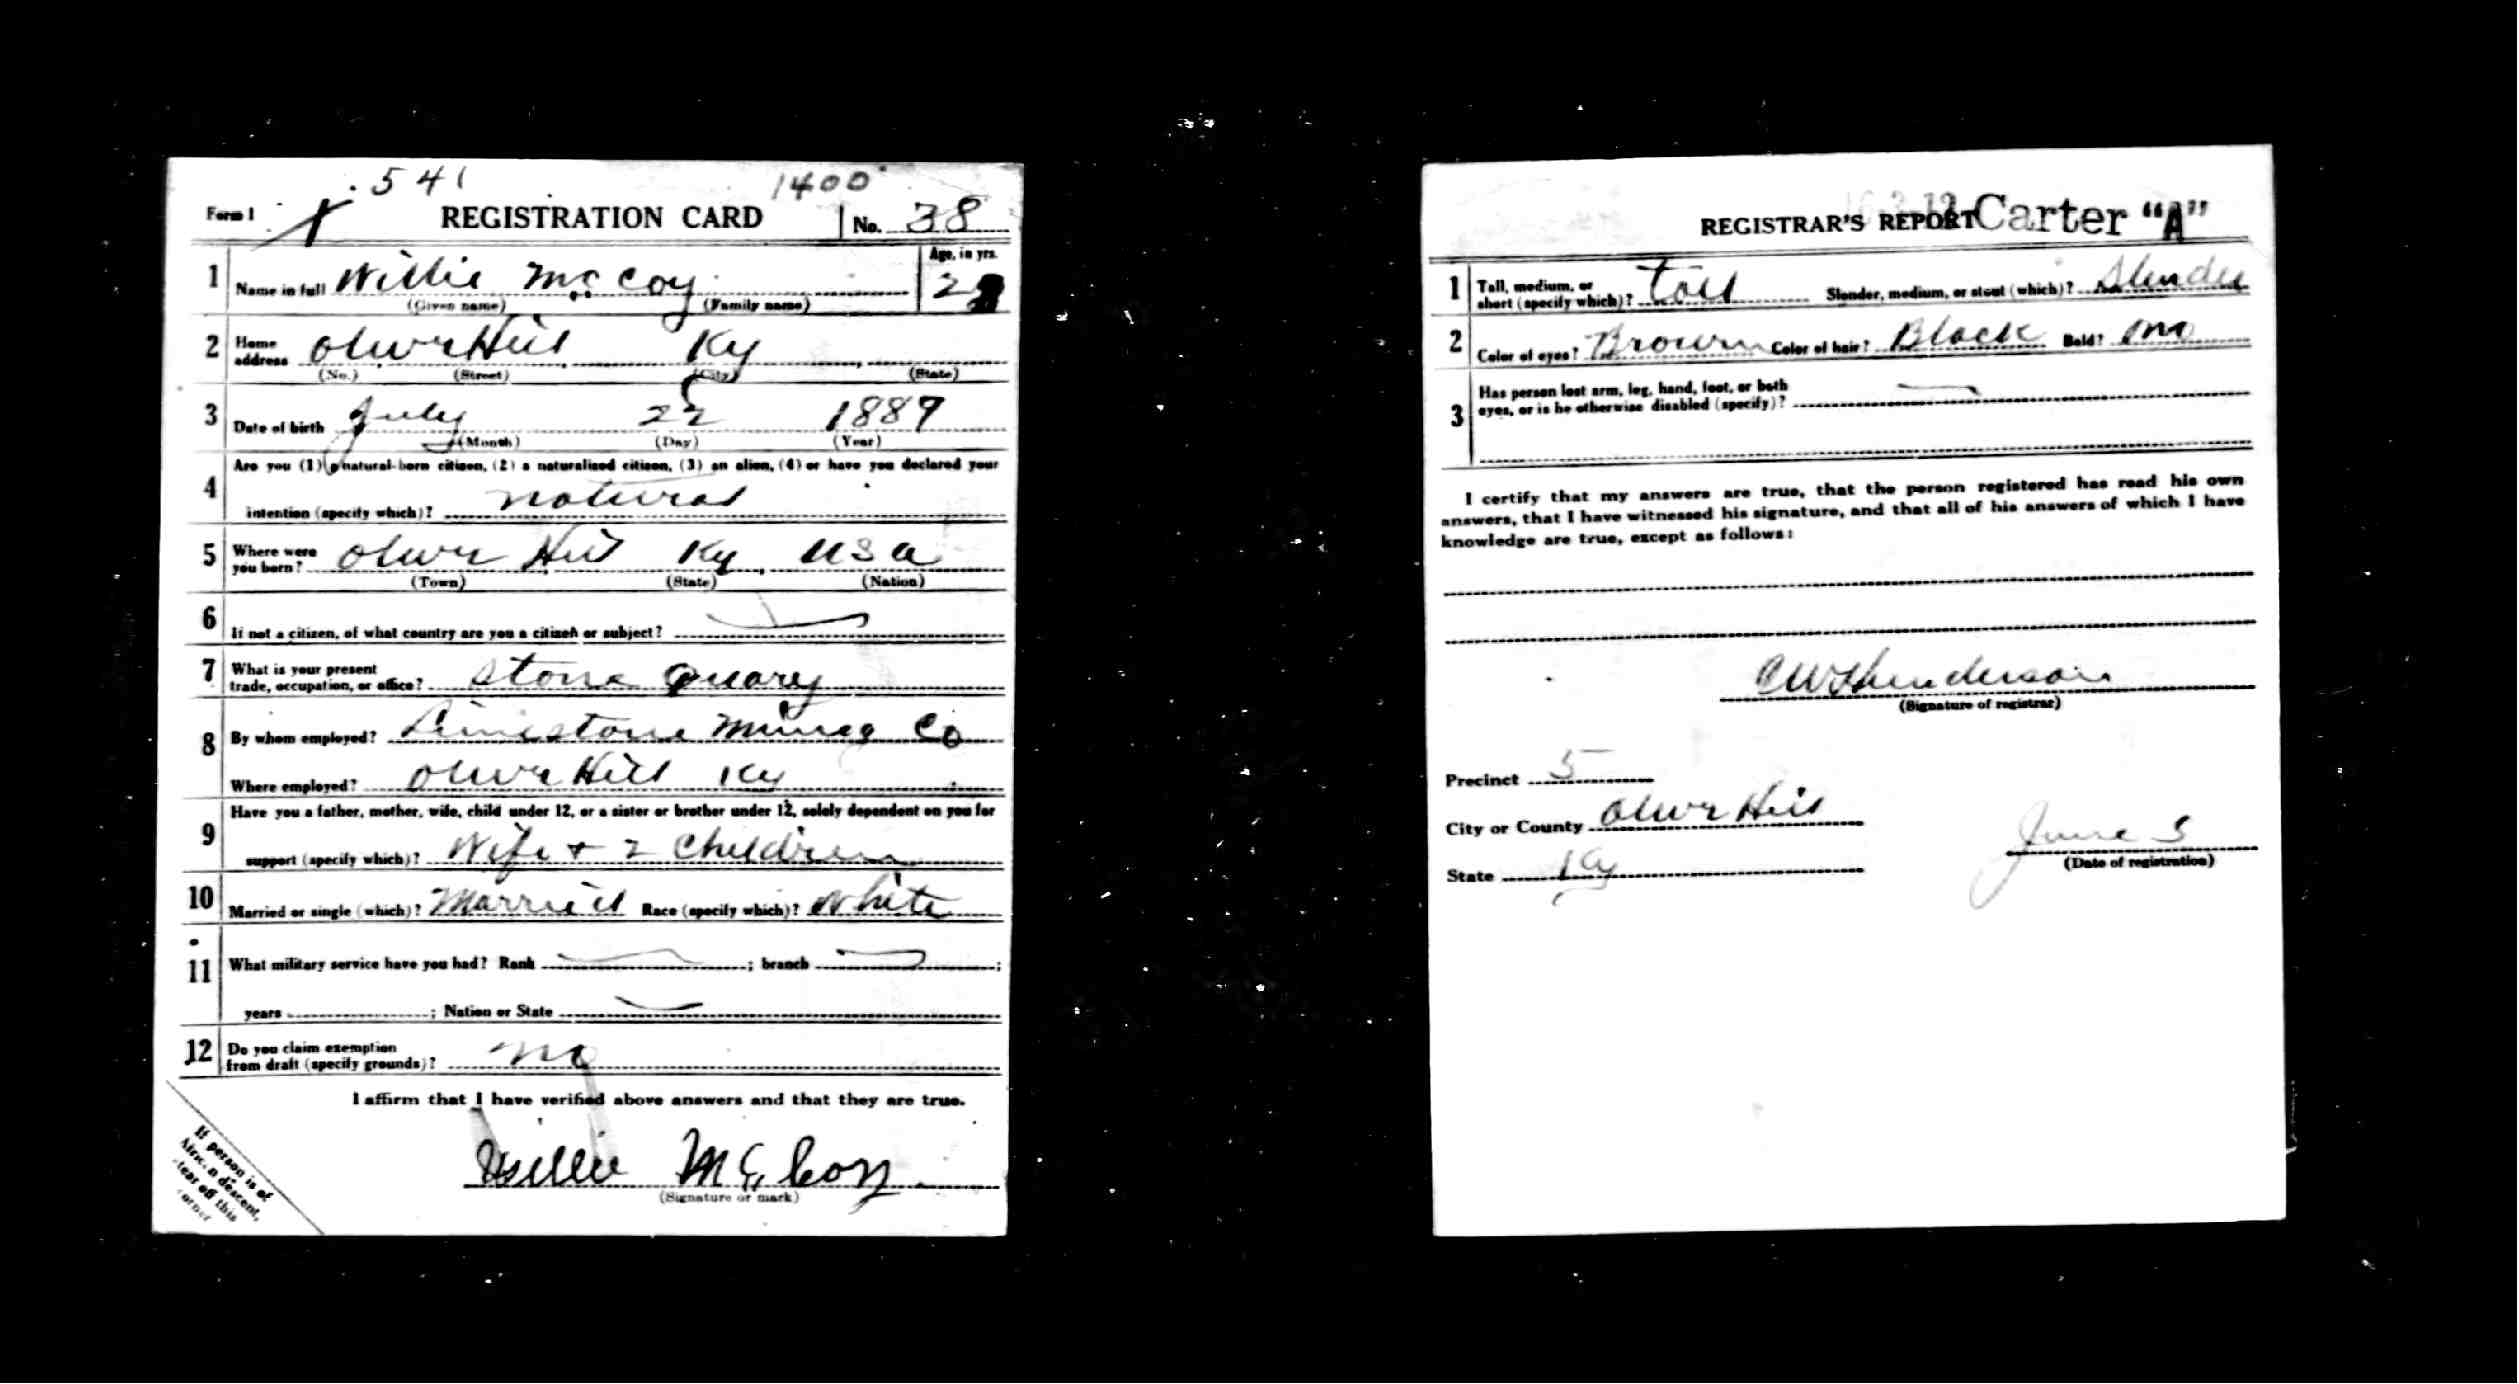 541 1400
Form 1 REGISTRATION CARD No. 38
1 Name in full Willie McCoy Age, in yrs.
(Given name) (Family name)
2 Home address Olive Hill Ky
(No.) (Street) (City) (State)
3 Date of birth July 22 1889
(Month) (Day) (Year)
4 Are you (1) a natural-born citizen, (2) a naturalized citizen, (3) an alien, (4) or have you declared your
intention (specify which)? natural
5 Where were you born? Olive Hill Ky USA
(Town) (State) (Nation)
6 If not a citizen, of what country are you a citizen or subject?
7 What is your present
trade, occupation, or office? Stone Quary
8 By whom employed? Limestone Mining Co
Where employed? Olive Hill Ky
9 Have you a father, mother, wife, child under 12, or a sister or brother under 12, solely dependent on you for
support (specify which)? Wife + 2 Children
10 Married or single (which)? Married Race (specify which)? White
11 What military service have you had? Rank ; branch ;
years ; Nation or State
12 Do you claim exemption
from draft (specify grounds)? no
I affirm that I have verified above answers and that they are true.
Willie McCoy
(Signature or mark)
If person is of
African descent,
tear off this
corner
REGISTRAR'S REPORT Carter "A"
1 Tall, medium, or
short (specify which)? Tall Slender, medium, or stout (which)? Slender
2 Color of eyes? Brown Color of hair? Black Bald? no
3 Has person lost arm, leg, hand, foot, or both
eyes, or is he otherwise disabled (specify)?
I certify that my answers are true, that the person registered has read his own
answers, that I have witnessed his signature, and that all of his answers of which I have
knowledge are true, except as follows:
CW Henderson
(Signature of registrar)
Precinct 5
City or County Olive Hill
State Ky
June 5
(Date of registration)